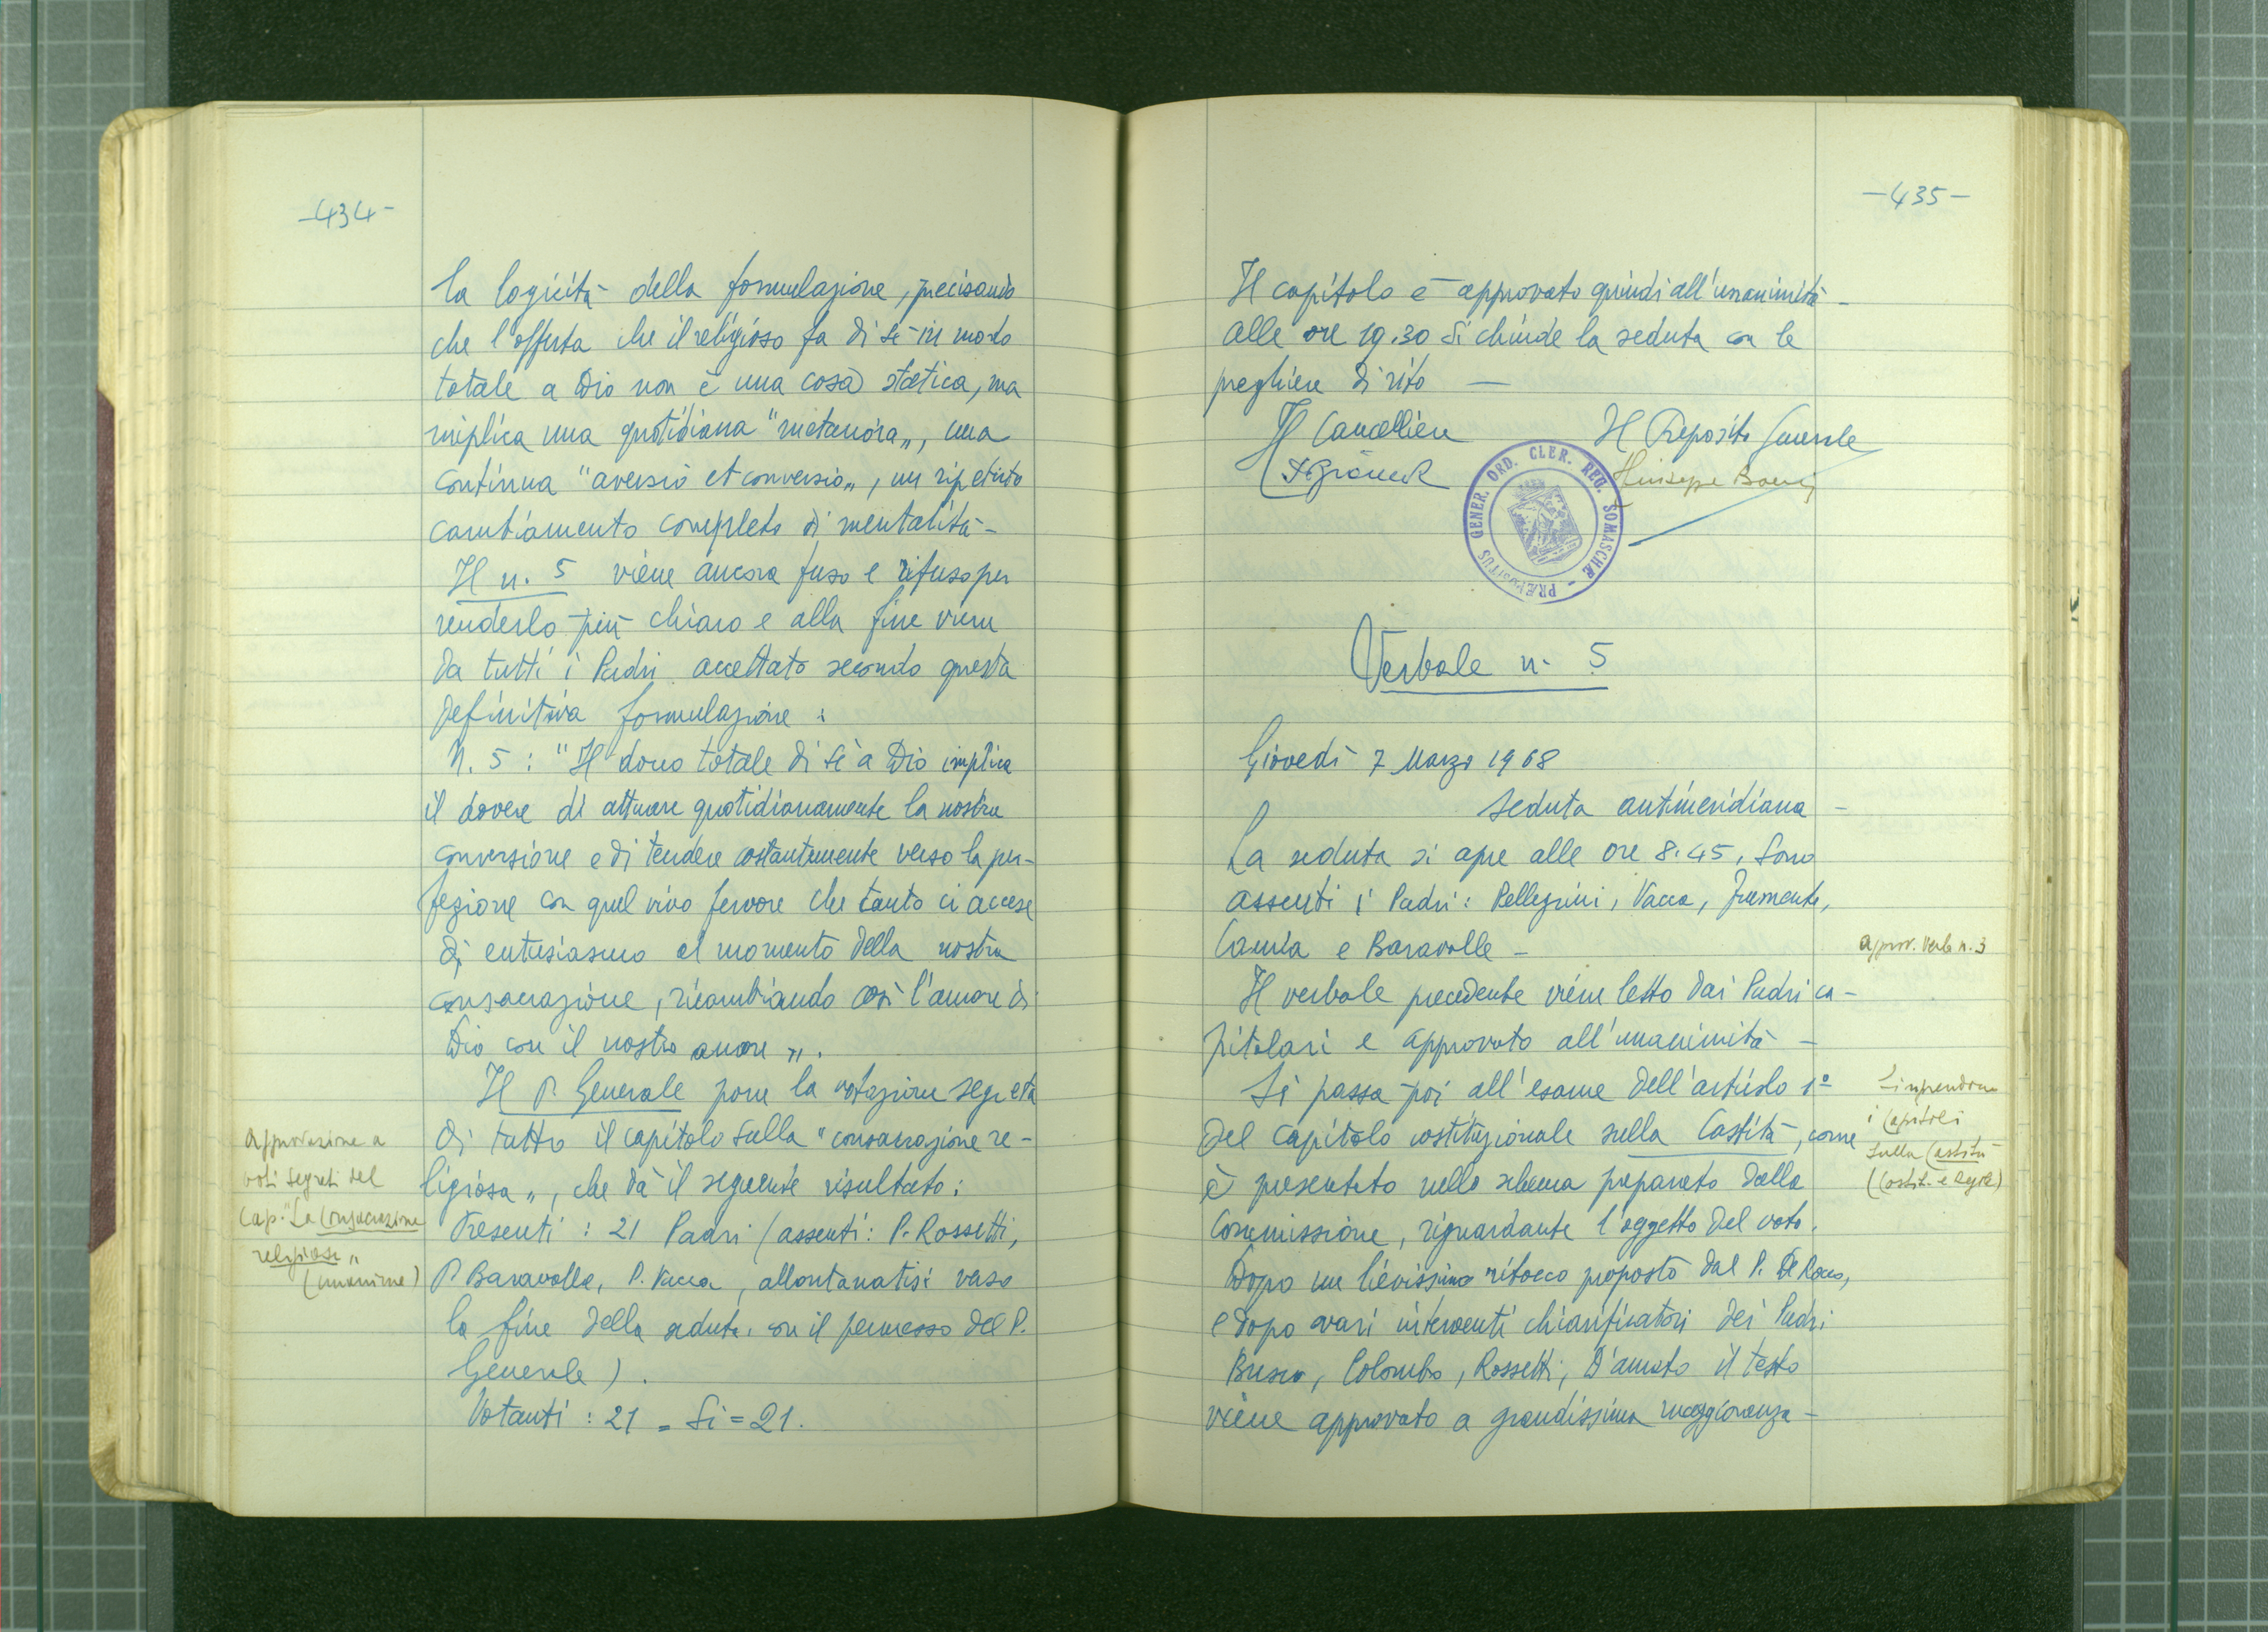 -434-
la logicità della formulazione, precisando
che l'offerta che il religioso fa di sè in modo
totale a Dio non è una cosa statica, ma
implica una quotidiana "metanoia„, una
continua "aversio et conversio„, un ripetuto
cambiamento completo di mentalità -
Il n. 5 viene ancora fuso e rifuso per
renderlo più chiaro e alla fine viene
da tutti i Padri accettato secondo questa
definitiva formulazione :
N. 5 : "Il dono totale di sè a Dio implica
il dovere di attuare quotidianamente la nostra
conversione e di tendere costantemente verso la per-
fezione con quel vivo fervore che tanto ci accese
di entusiasmo al momento della nostra
consacrazione, ricambiando così l'amore di
Dio con il nostro amore „.
Il P. Generale pone la votazione segreta
di tutto il capitolo sulla "consacrazione re-
ligiosa„, che dà il seguente risultato :
Presenti : 21 Padri (assenti : P. Rossetti,
P. Baravalle, P. Vacca, allontanatisi verso
la fine della seduta, con il permesso del P.
Generale) .
Votanti : 21 = Si = 21.
Approvazione a
voti segreti del
cap. "La Consacrazione
religiosa „
(unanime)
-435-
Il capitolo è approvato quindi all'unanimità -
alle ore 19.30 si chiude la seduta con le
preghiere di rito —
Il Cancelliere Il Preposito Generale
Giuseppe
PRÆPOSITUS GENER. ORD. CLER. REG. SOMASCHÆ
Verbale n. 5
Giovedì 7 Marzo 1968
seduta antimeridiana -
La seduta si apre alle ore 8.45, sono
assenti i Padri : Pellegrini, Vacca, Frumento,
Camia e Baravalle -
Il verbale precedente viene letto dai Padri ca-
pitolari e approvato all'unanimità -
Si passa poi all'esame dell'articolo 1º
del capitolo costituzionale sulla Castità, come
è presentato nello schema preparato dalla
Commissione, riguardante l'oggetto del voto.
Dopo un lievissimo ritocco proposto dal P. De Rocco,
e dopo vari interventi chiarificatori dei Padri
Busco, Colombo, Rossetti, D'amato il testo
viene approvato a grandissima maggioranza -
approv. Verb n. 3
Si riprendono
i capitoli
sulla Castità
(Costit. e Regole)